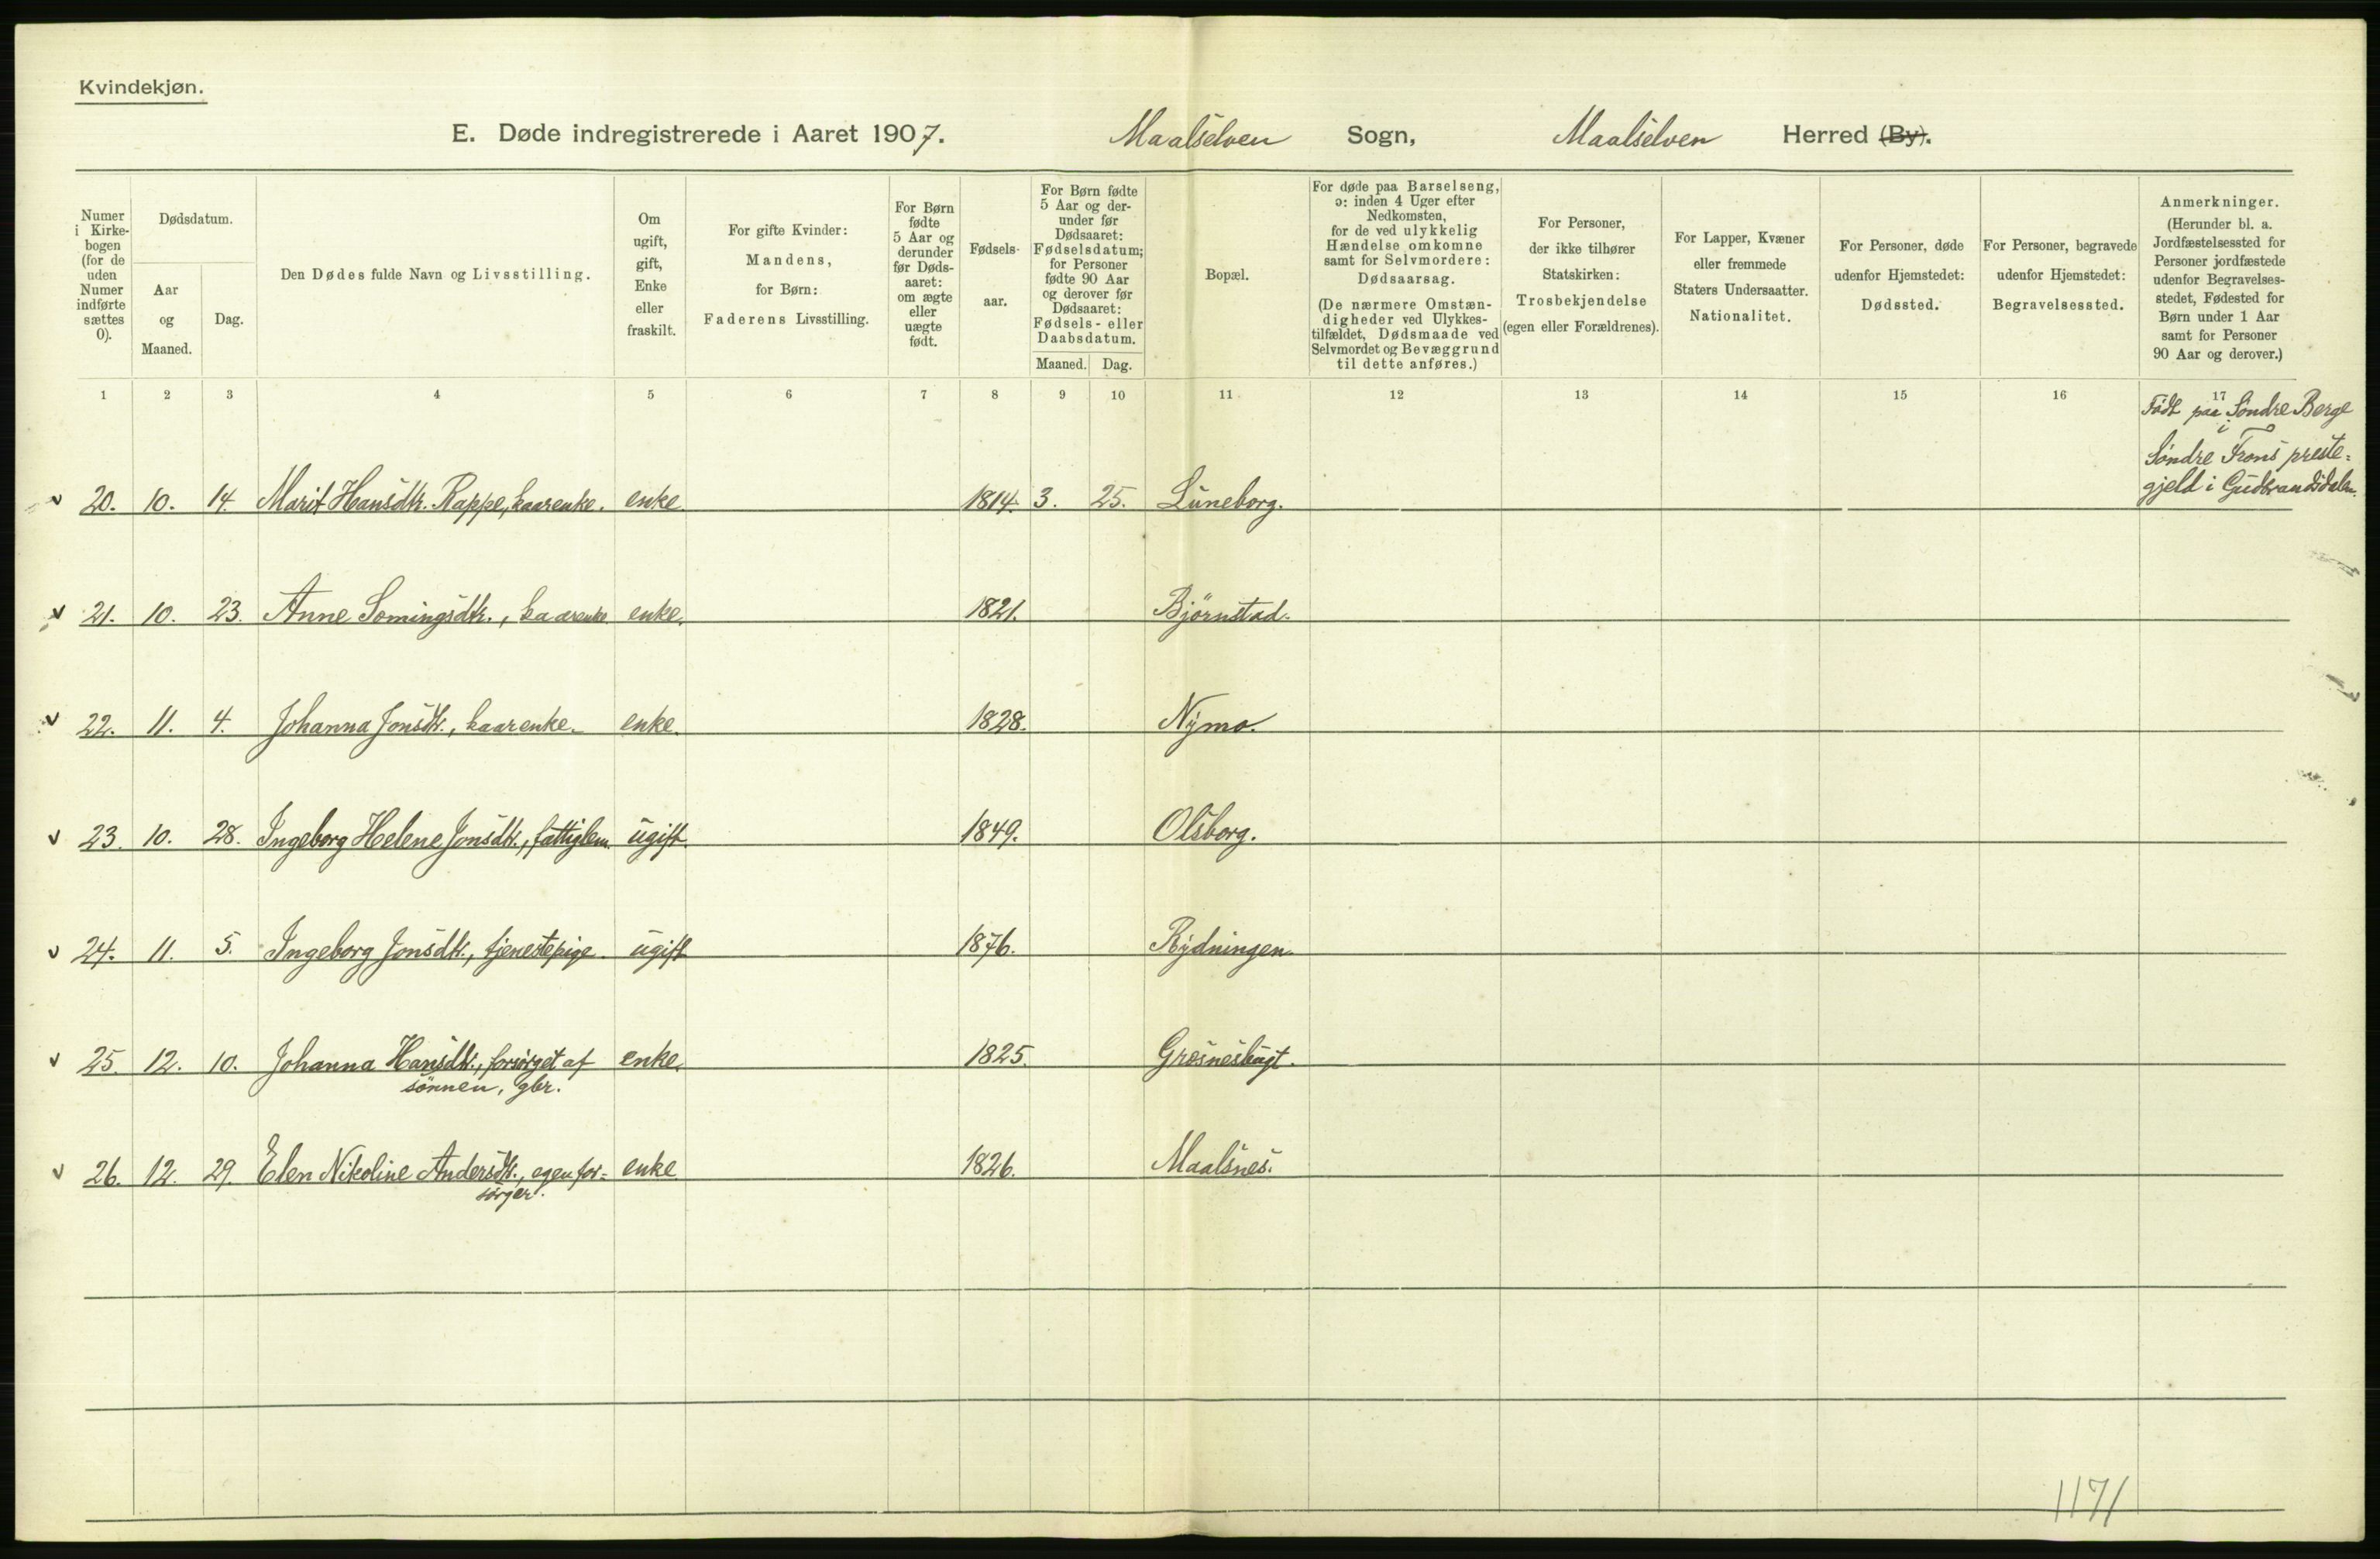 Kvindekjøn.
E. Døde indregistrerede i Aaret 1907. Maalselven Sogn, Maalselven Herred (By).
Numer i Kirkebogen (for de uden Numer indførte sættes 0).
Dødsdatum.
Aar og Maaned.
Dag.
Den Dødes fulde Navn og Livsstilling.
Om ugift, gift, Enke eller fraskilt.
For gifte Kvinder: Mandens, for Børn: Faderens Livsstilling.
For Børn fødte 5 Aar og derunder før Dødsaaret: om ægte eller uægte født.
Fødselsaar.
For Børn fødte 5 Aar og derunder før Dødsaaret: Fødselsdatum; for Personer fødte 90 Aar og derover før Dødsaaret: Fødsels- eller Daabsdatum.
Maaned. Dag.
Bopæl.
For døde paa Barselseng, ɔ: inden 4 Uger efter Nedkomsten, for de ved ulykkelig Hændelse omkomne samt for Selvmordere: Dødsaarsag.
(De nærmere Omstændigheder ved Ulykkestilfældet, Dødsmaade ved Selvmordet og Bevæggrund til dette anføres.)
For Personer, der ikke tilhører Statskirken: Trosbekjendelse (egen eller Forældrenes).
For Lapper, Kvæner eller fremmede Staters Undersaatter. Nationalitet.
For Personer, døde udenfor Hjemstedet: Dødssted.
For Personer, begravede udenfor Hjemstedet: Begravelsessted.
Anmerkninger.
(Herunder bl. a. Jordfæstelsessted for Personer jordfæstede udenfor Begravelsesstedet, Fødested for Børn under 1 Aar samt for Personer 90 Aar og derover.)
1 2 3 4 5 6 7 8 9 10 11 12 13 14 15 16 17
Født paa Søndre Berge
i
Søndre Frons preste-
gjeld i Gudbrandsdalen.
v 20. 10. 14. Marit Hansdtr. Rappe, kaarenke. enke 1814. 3. 25. Luneborg.
v 21. 10. 23. Anne Somingsdtr., kaarenke enke. 1821. Bjørnstad.
v 22. 11. 4. Johanna Jonsdtr., kaarenke. enke. 1828. Nymo.
v 23. 10. 28. Ingeborg Helene Jonsdtr., fattiglem. ugift. 1849. Olsborg.
v 24. 11. 5. Ingeborg Jonsdtr., tjenestepige. ugift 1876. Rydningen.
v 25. 12. 10. Johanna Hansdtr., forsørget af enke. 1825. Grøsnesbugt.
sønnen, gbr.
v 26. 12. 29. Elen Nikoline Andersdtr., egen for- enke 1826. Maalsnes.
sørger.
1171